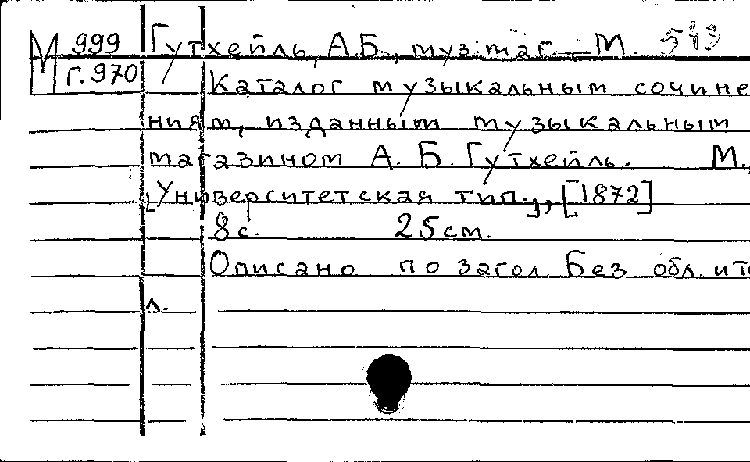 М 999 Гутхейль, А.Б., муз. маг. — М. 593
Г.970 Каталог музыкальным сочине
ниям, изданным музыкальным
магазином А. Б. Гутхейль. М.,
[Университетская тип.], [1872]
8 с. 25 см.
Описано по загол. Без обл. и т
л.